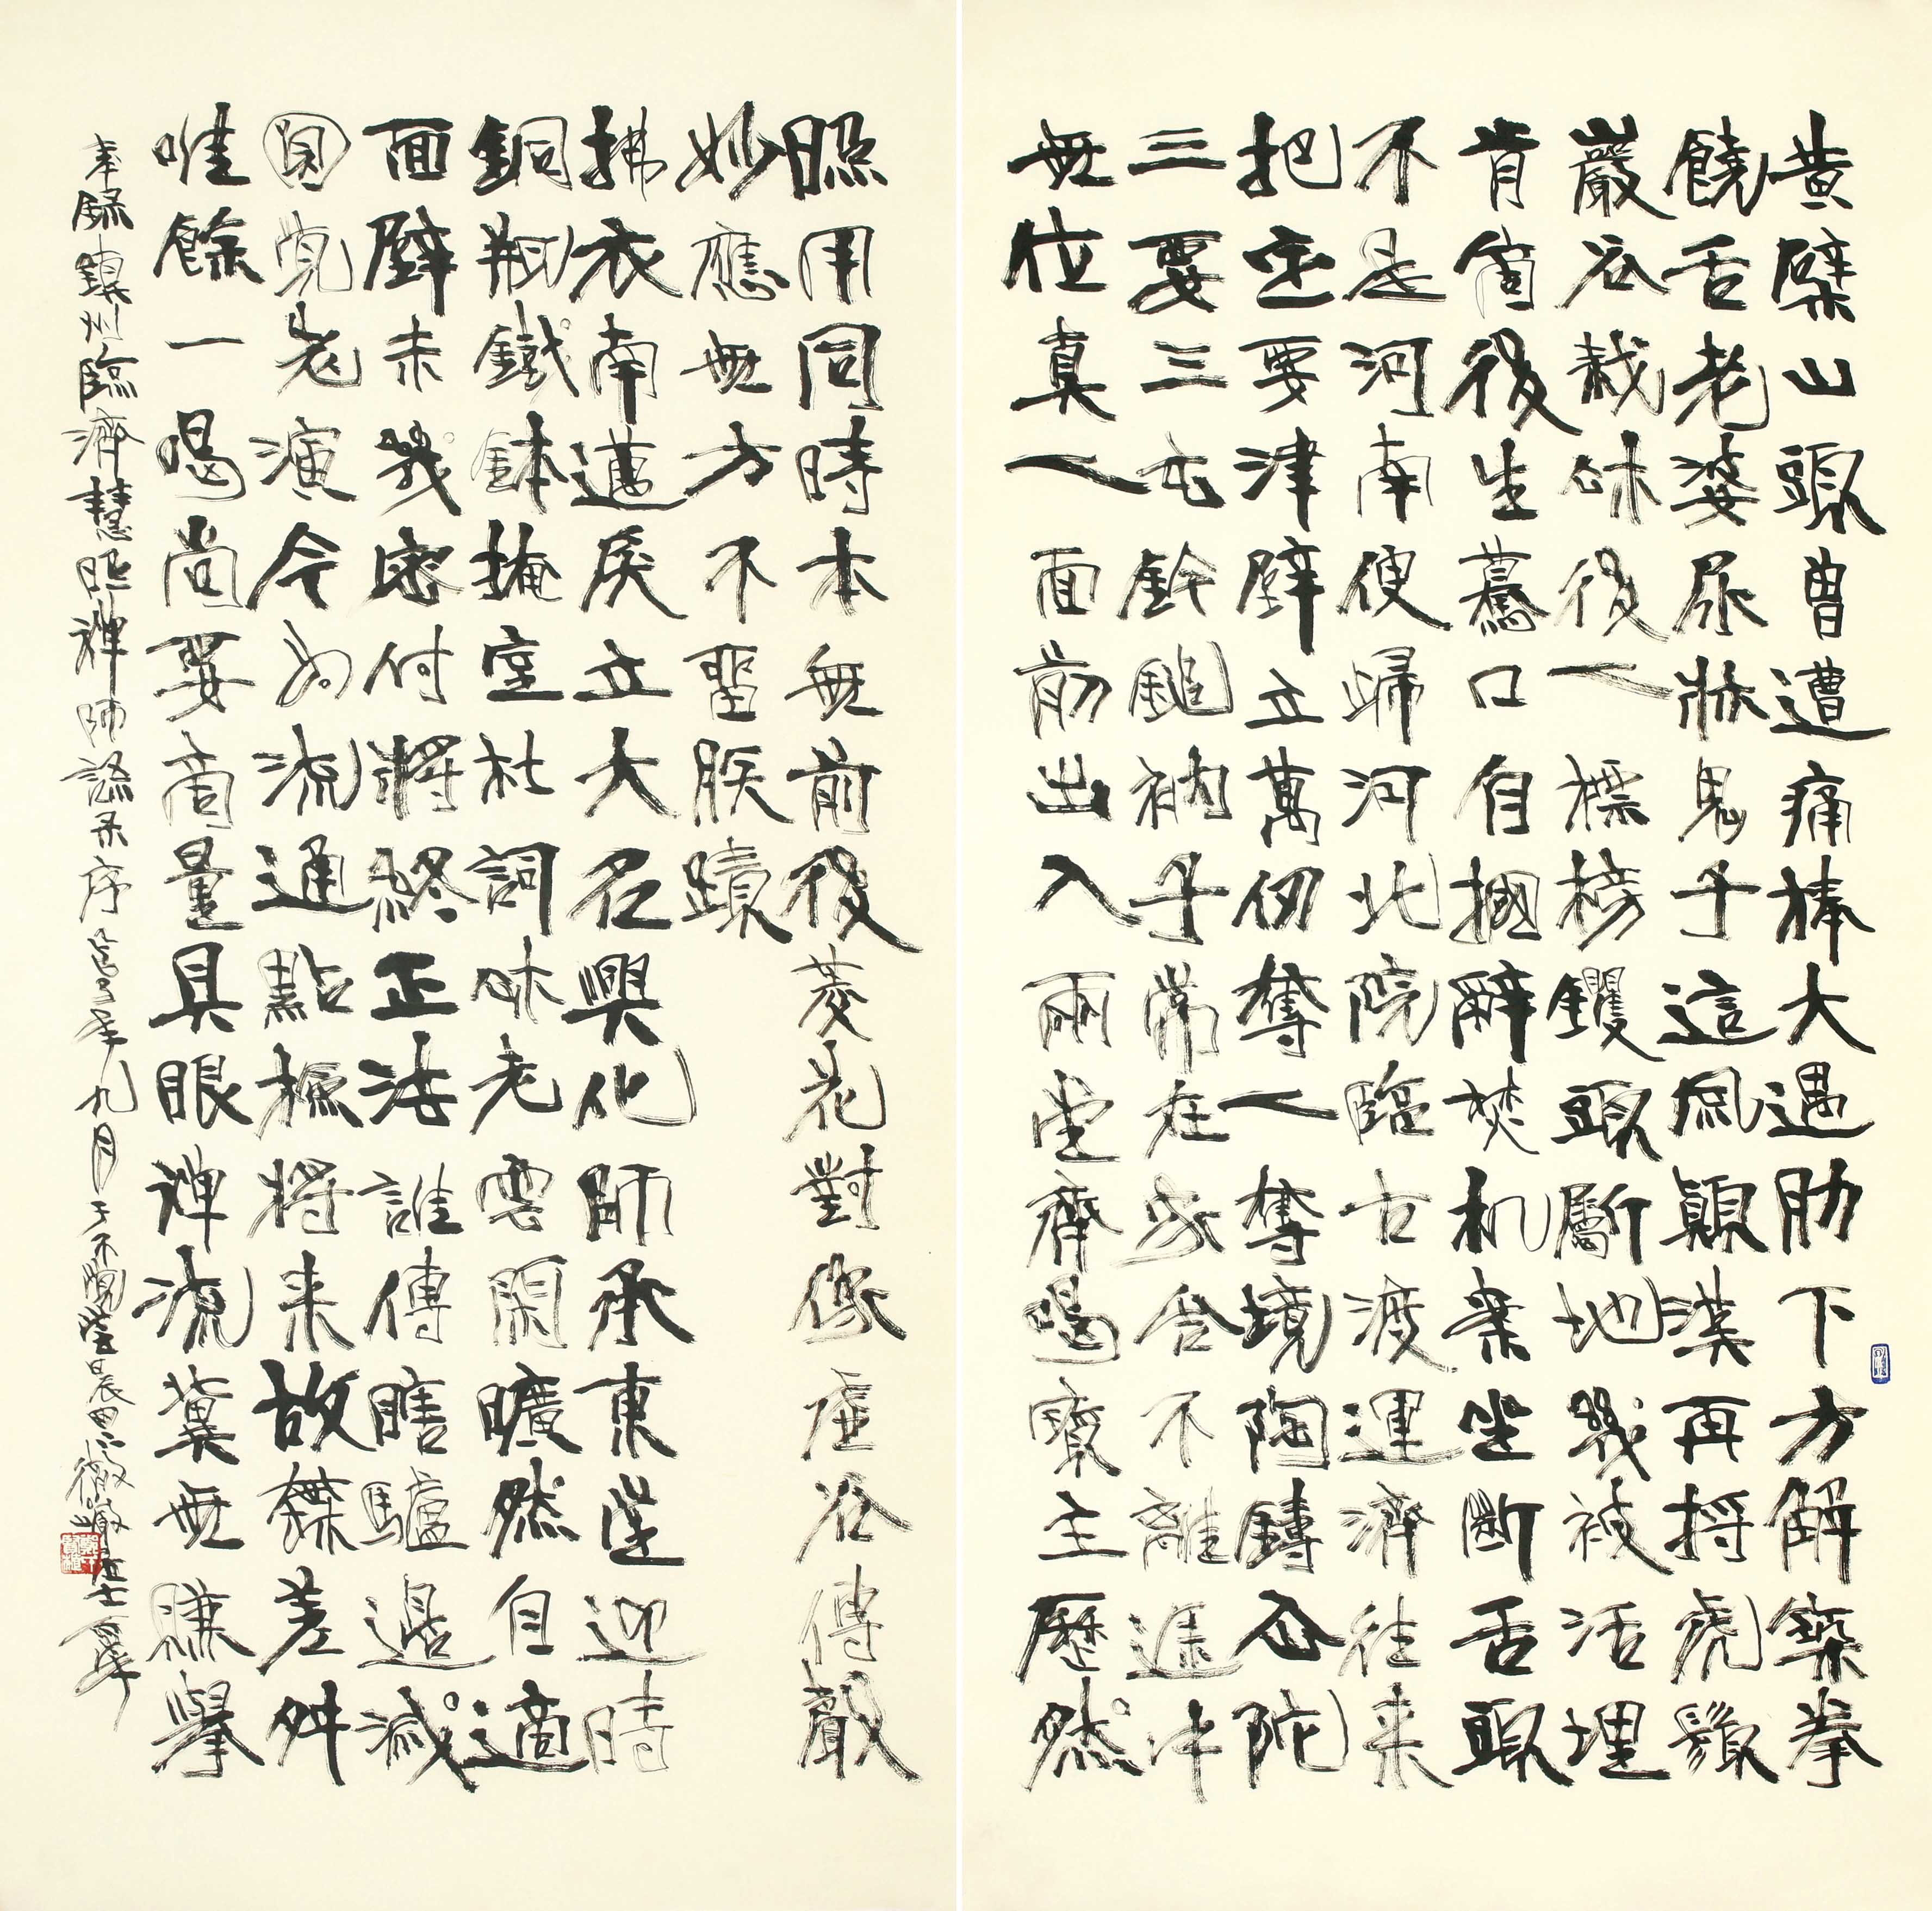 黄檗山頭曾遭痛棒大遇肋下方解築拳
饒舌老婆尿牀鬼子這風顛漢再捋虎鬚
巖谷栽松後人標榜钁頭斸地幾被活埋
肯箇後生驀口自摑辭焚机案坐断舌頭
不是河南便歸河北院臨古渡運濟往来
把定要津壁立萬仞奪人奪境陶鑄仚陀
三要三玄鈐鎚衲子常在家舎不離途中
無位真人面前出入兩堂齊喝賓主歷然
照用同時本無前後菱花對像虚谷傳聲
妙應無方不留朕蹟
拂衣南邁戾止大名興化師承東堂迎時
銅瓶鐵鉢掩室杜詞松老雲閑曠然自適
面壁未幾密付將終正法誰傳瞎驢邊滅
圓覚老演今為流通點撿将来故無差舛
唯餘一喝尚要商量具眼禅流冀無賺舉
奉録鎮州臨濟慧照禅師語录序